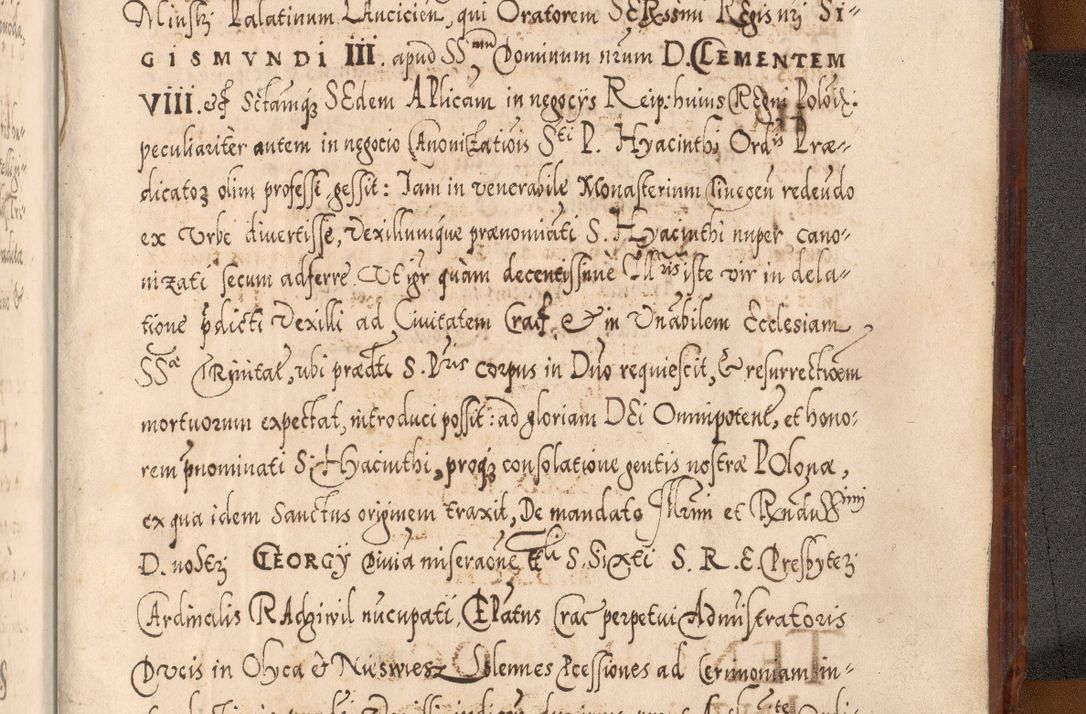 Minsky Palatinum Lancicien, qui Oratorem SERssmi Regis nri SI-
GISMVNDI III. apud SSmm Dominum nrum D. CLEMENTEM
VIII. et Sctamqз SEdem APlicam in negocÿs Reip: huius REgni Poloīę:
peculiaritèr autem in negocio CAnonizatiois Sti P. Hyacinthi Ordis Præ-
dicatoꝝ olim professi, gessit: Iam in venerabile Monasterium redeūdo
ex Vrbe divertisse, Vexillumque prænomiāti S. Hyacinthi nuper cano-
nizati secum adferre. Vt igr quàm decentissime Illris iste vir in dela-
tione pdicti Vexilli ad Ciuitatem Crac. & in Vnabilem Ecclesiam
SSæ TRinitat, ubi prædti S. Pris corpus in Dnō requiescit, & resurrectioēm
mortuorum expectat, introduci possit: ad gloriam DEi Omnipotent, et hono-
rem pnominati S. Hyacinthi, proqз consolatione gentis nostræ POlonæ,
ex qua idem Sanctus originem traxit, De mandato Illrimi et RndissImi
D. nostri GEORGÿ Diuīa miseraōne ttli S. Sixti S. R. E. Presbyteri
CArdinalis RAdziwil nūcupati, EPatus Crac perpetui Administratoris
Ducis in Olyca et Nieswiesz Solennes Pcessiones ad Cerimoniam in-